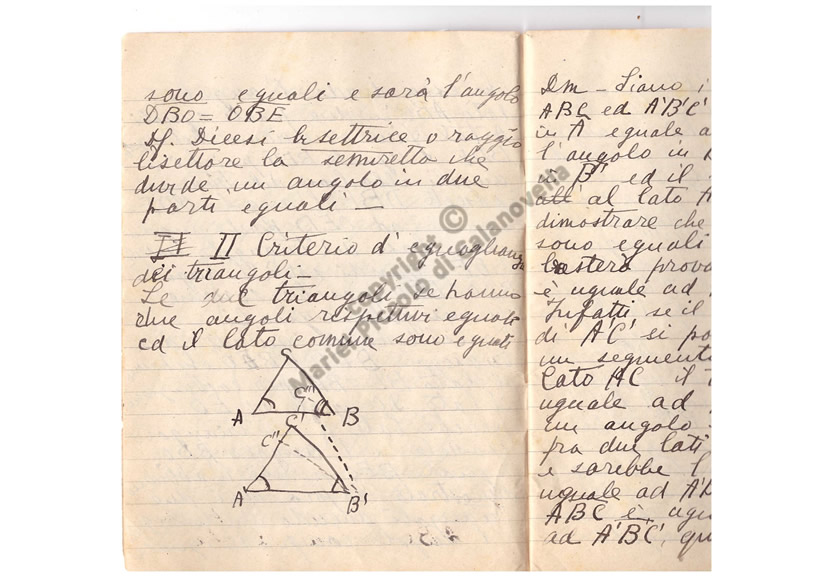 sono eguali e sarà l'angolo
DBO = OBE
Df. Dicesi bisettrice o raggio
bisettore la semiretta che
divide un angolo in due
parti eguali —
II Criterio d'eguaglianza
dei triangoli —
Se due triangoli se hanno
due angoli respettivi eguali
ed il lato comune sono eguali
C
C'''
A B
C'
C''
A' B'
Dm - Siano i
ABC ed A'B'C'
in A eguale a
l'angolo in
in B' ed il
al lato A
dimostrare che
sono eguali
basterà prova
è uguale ad
Infatti se il
di A'C' si po
un segmento
lato AC il
uguale ad
un angolo
fra due lati
e sarebbe l
uguale ad A'B
ABC è ugu
ad A'B'C', qu
copyright ©
Mariel Piccolo di Calanovella